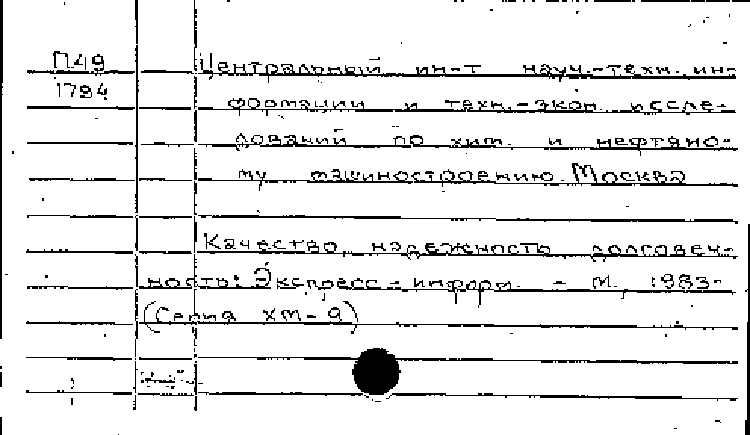 П49 Центральный ин-т науч.-техн. ин-
1784 формации и техн.-экон. иссле-
дований по хим. и нефтяно-
му машиностроению. Москва
Качество, надежность, долговеч-
ность: Экспресс-информ. - М., 1983-
(Серия ХМ-9)